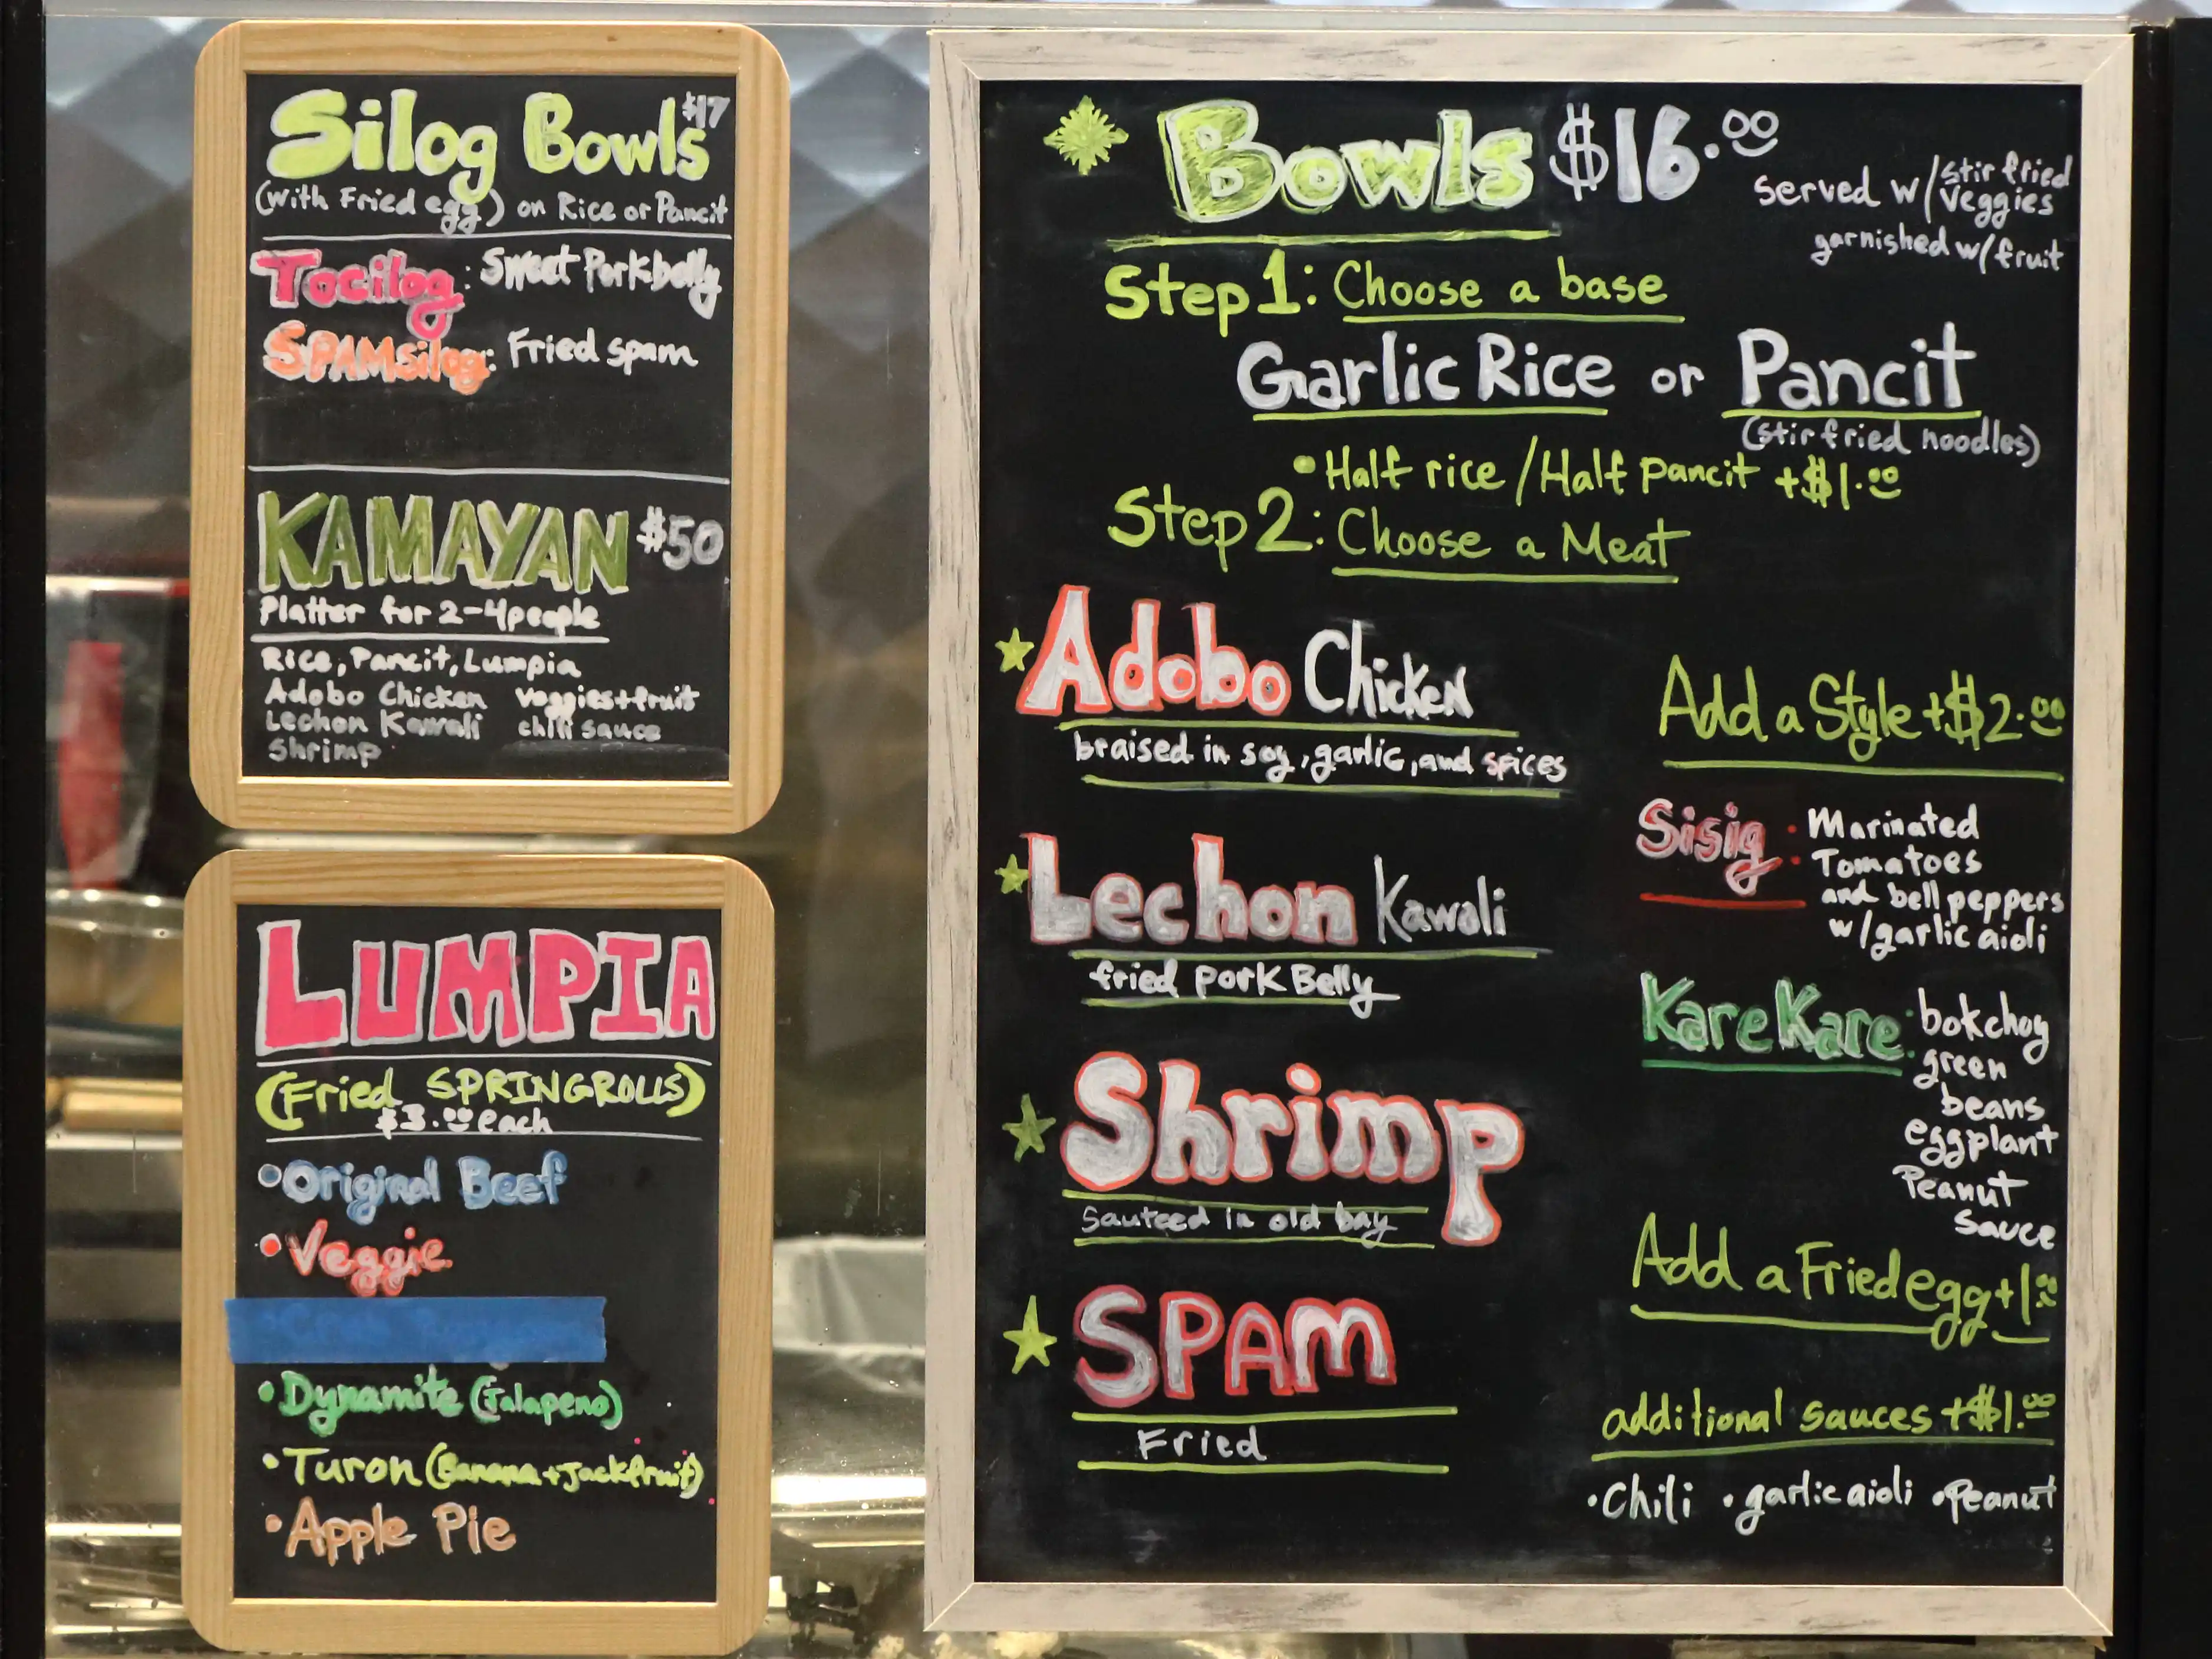 Silog Bowls $17
(with Fried egg) on Rice or Pancit
Tocilog: Sweet Porkbelly
SPAMsilog: Fried spam
KAMAYAN $50
Platter for 2-4 people
Rice, Pancit, Lumpia
Adobo Chicken veggies+fruit
Lechon Kawali chili sauce
Shrimp
LUMPIA
(Fried SPRINGROLLS)
$3.00 each
•Original Beef
•Veggie
•Dynamite (Jalapeno)
•Turon (Banana+Jackfruit)
•Apple Pie
Bowls $16.00
served w/ stir fried
veggies
garnished w/fruit
Step 1: Choose a base
Garlic Rice or Pancit
(stir fried noodles)
•Half rice/Half pancit +$1.00
Step 2: Choose a Meat
Adobo Chicken
braised in soy, garlic, and spices
Lechon Kawali
fried pork Belly
Shrimp
Sauteed in old bay
SPAM
Fried
Add a Style +$2.00
Sisig: Marinated
Tomatoes
and bell peppers
w/garlic aioli
Kare Kare: bokchoy
green
beans
eggplant
Peanut
Sauce
Add a Fried egg +1.00
additional sauces +$1.00
•Chili •garlic aioli •Peanut